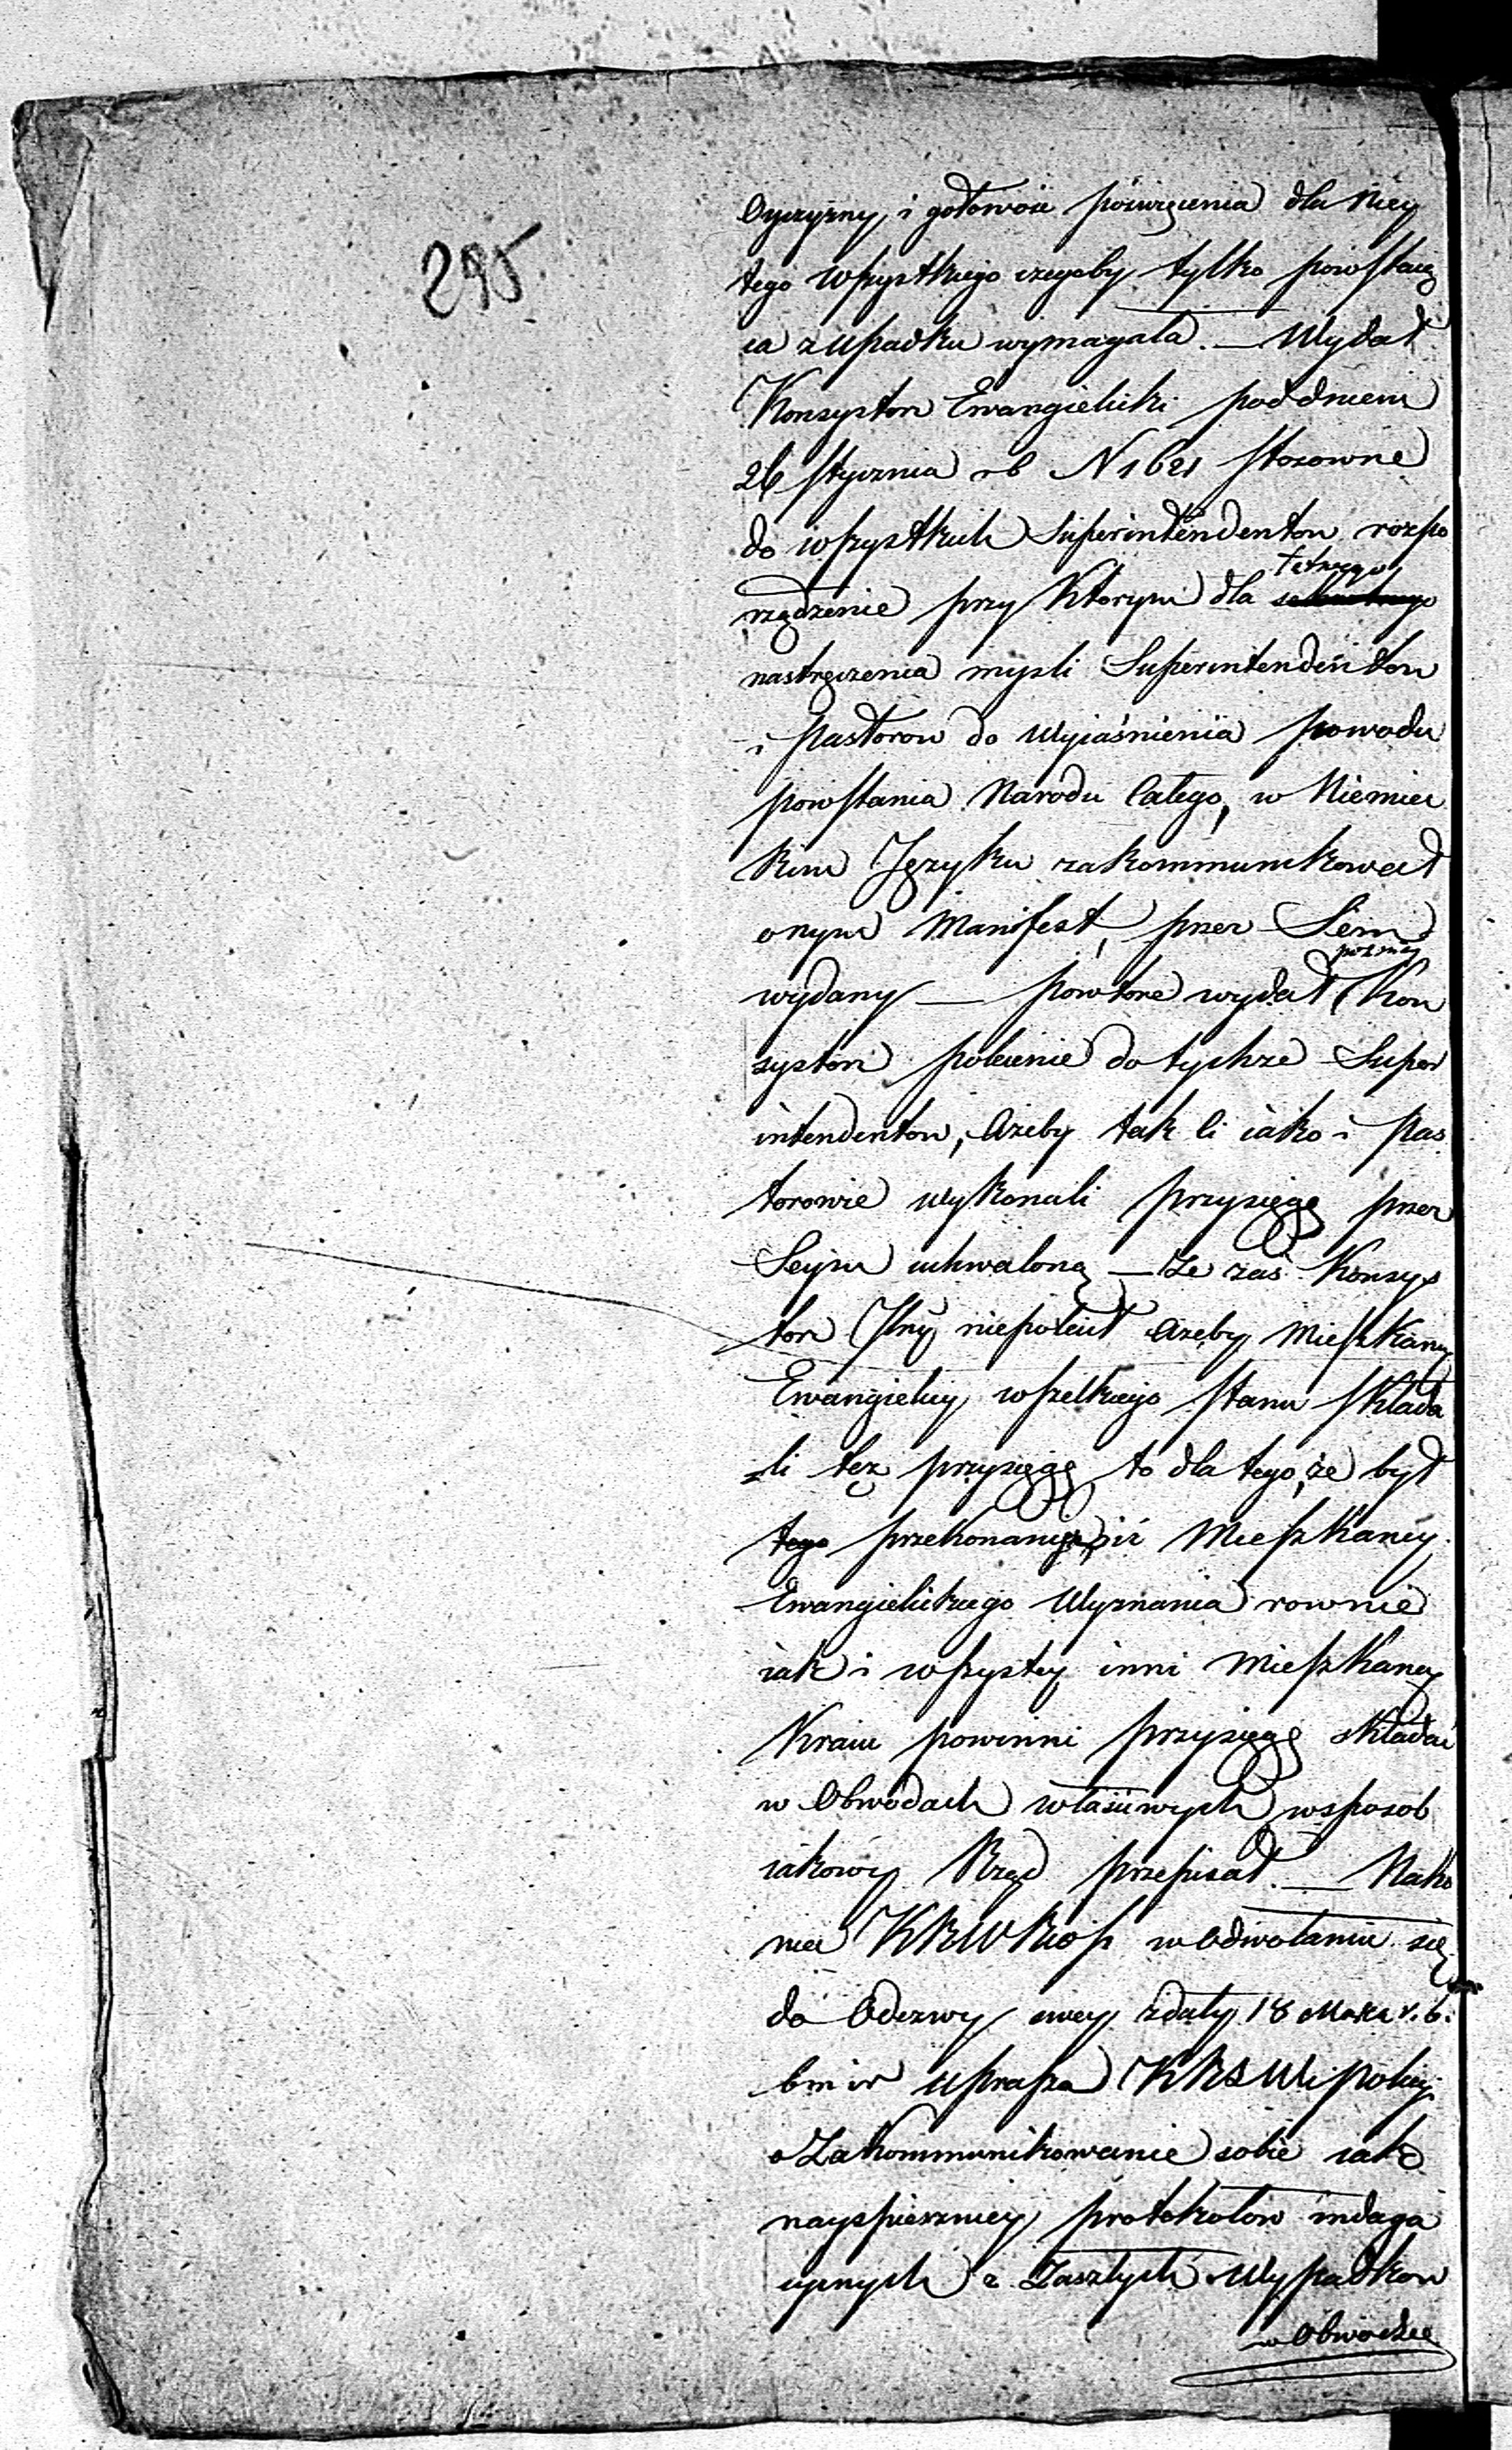 295
Oyczyzny, i gotowość póświęcenia dla Niey
tego wszystkiego czegoby tylko powstaią
ca z upadku wymagała. — Wydał
Konsystorz Ewangielicki pod dniem
26 stycznia rb N 1621 stosowne
do wszystkich Superintendentow rozpo
rządzenie przy ktorym dla
nastręczenia mysli Superintendentow
i Pastorow do wyiaśnienia powodu
powstania Narodu całego, w Niemiec
kim Języku zakommunikował
onym Manifest, przez Seim
wydany — powtóre wydał poźniey Kon
systorz polecenie do tychże Super
intendentow, ażeby tak ci iako i Pas
torowie wykonali przysięgę przez
Seym uchwaloną — Że zaś Konsys
torz niepolecił ażeby Mieszkańcy
Ewangieliccy wszelkiego stanu składa
li też przysięgę to dla tego, że był
tego przekonania, iż Mieszkańcy
Ewangielickiego Wyznania rownie
iak i wszyscy inni Mieszkańcy
Kraiu powinni przysięgę składać
w Obwodach właściwych w sposob
iakowy Rząd przepisał. — Nako
niec KRWRiOP w odwołaniu się
do Odezwy swey z daty 18 Marca r. b.
uprasza KRSWiPolicyi
o Zakommunikowanie sobie iak
nayspieszniey protokołów indaga
cyinych z Zaszłych Wypadkow
w Obwodzie